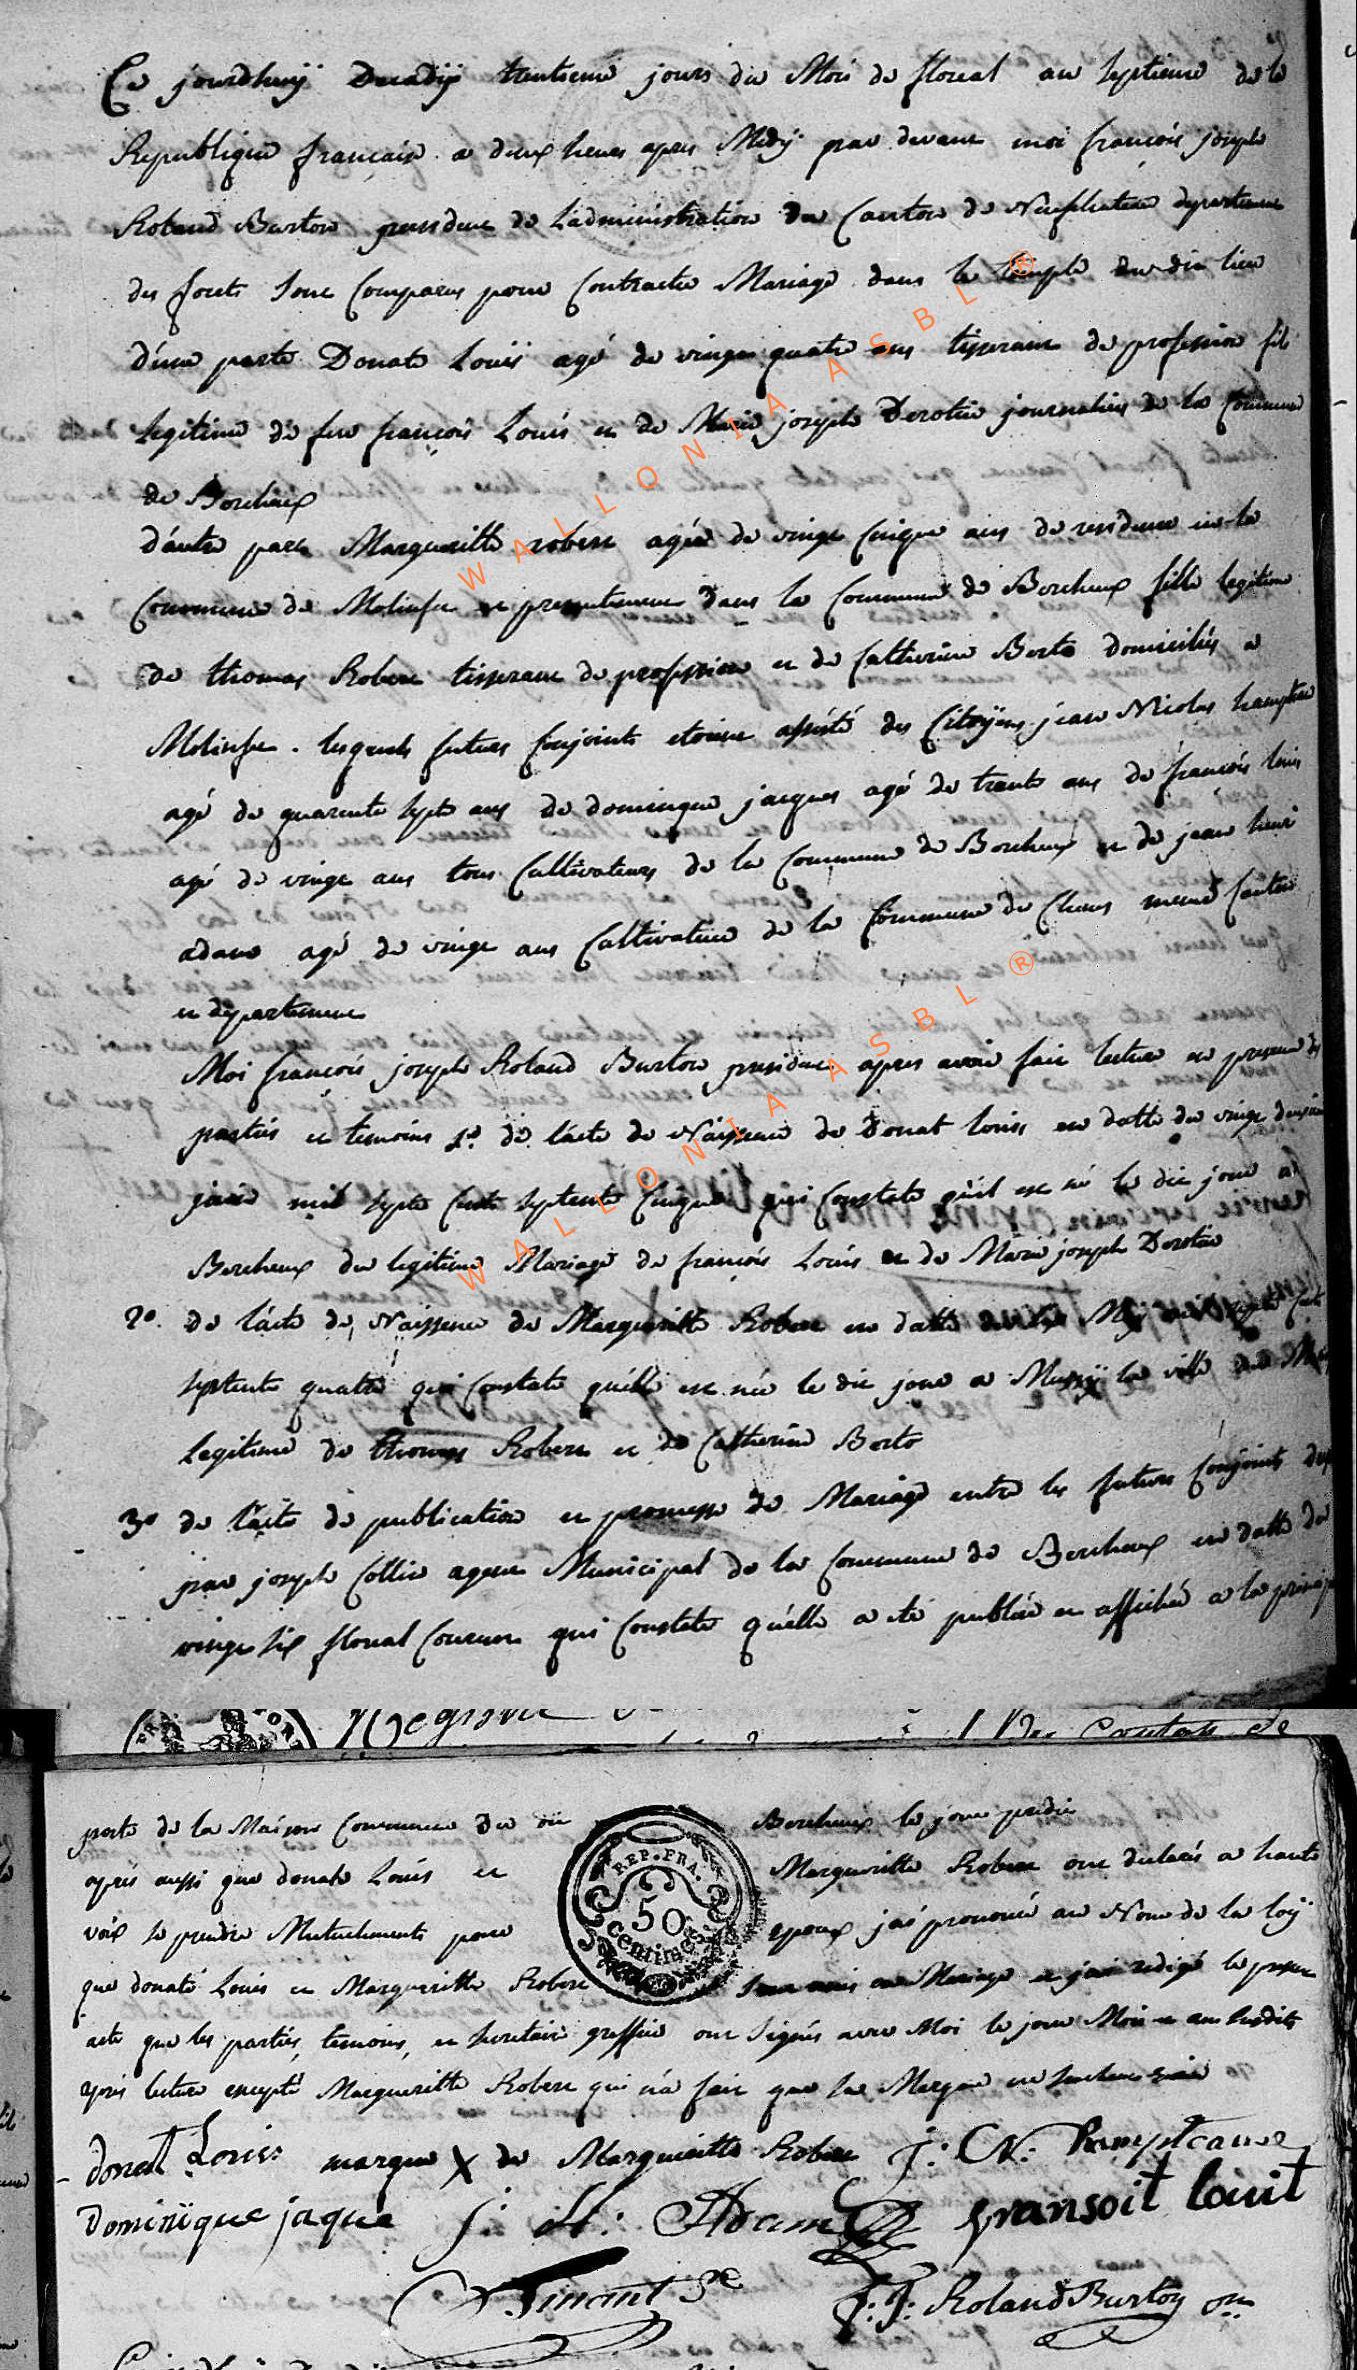 Ce jourdhuÿ Decadÿ trentieme jours du Mois de floreal an septieme de la
Republique française a deux heures apres Midÿ par devant moi françois joseph
Roland Burton president de L'administration du Canton de Neufchateau departement
des forets sont Comparus pour Contracter Mariage dans le temple du dit lieu
d'une parte Donate Louis agé de vingt quatre ans tisserant de profession fils
legitime de feu françois Louis et de Marie joseph Derotin journaliers de la Commune
de Bercheux
d'autre part Margueritte robert agée de vingt Cinque ans de residence en la
Commune de Molinfa et presentement dans la Commune de Bercheux fille legitime
de thomas Robert tisserant de profession et de Catherine Berto domiciliés a
Molinfa . lesquels futurs Conjoints etoient assisté des Citoÿens jean Nicolas
agé de quarente septe ans de dominque jacques agé de trente ans de françois louis
agé de vingt ans tous Cultivateurs de la Commune de Bercheux et de jean henri
adam agé de vingt ans Cultivateur de la Commune de meme Canton
et departement
Moi françois joseph Roland Burton president apres avoir fait lecture en presence des
parties et temoins 1º de l'acte de Naissence de Donat louis en datte du vingt deuxieme
mil septe Cents septente Cinque qui Constate qu'il est né le dit jour a
Bercheux du legitime Mariage de françois Louis et de Marie joseph Derotin
2º. de l'acte de Naissence de Margueritte Robert en datte du Maÿ mil septe Cents
septente quatre qui Constate qu'elle est née le dit jour a Mussÿ la ville du
legitime de thomas Robert et de Catherine Berto
3º de l'acte de publication et promesse de Mariage entre les futurs Conjoints
par joseph Collin agent Municipal de la Commune de Bercheux en datte du
vingt six floreal Courant qui Constate qu'elle a eté publiée et affichée a la principale
porte de la Maison Commune du dit Bercheux le jour predit
REP. FRA.
50
centimes
apres aussi que donate Louis et Margueritte Robert ont declarés a haute
voix se prendre Mutuellement pour epoux j'ai prononcé au Nom de la loÿ
que donate Louis et Margueritte Robert sont unis en Mariage et j'ai redigé le present
acte que les parties, temoins, et secretair greffier ont signés avec Moi le jour Mois et an susdits
apres lecture excepté Margueritte Robert qui n'a fait que sa Marque
donat Louis marque X de Margueritte Robert j: N:
Dominique jaque j: H: Adam fransoit louit
Sinant
F: J: Roland Burton
WALLONIA ASBL ®
WALLONIA ASBL ®